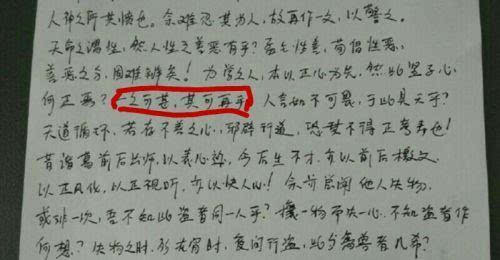 人神之所共愤也。余难忍其为人，故再作一文，以警之。
天命之谓性，然人性之善恶有乎？孟主性善，荀倡性恶，
善恶之分，固难辨矣！为学之人，本以正心为先，然此竖子心
何正焉？一之可甚，其可再乎 人言如不可畏，于此是天乎？
天道循环，若存不善之心，邪辟行道，恐
昔诸葛前后出师，以表心迹，今后生不才，亦以前后檄文
以正风化，以正视听，亦以快人心！余前岂闻他人失物，
或非一次，吾不知此盗者同一人乎？攘一物卒决一心，不知盗者作
何想？失物之时，多在宵时，夜间行盗，此与禽兽者几希？